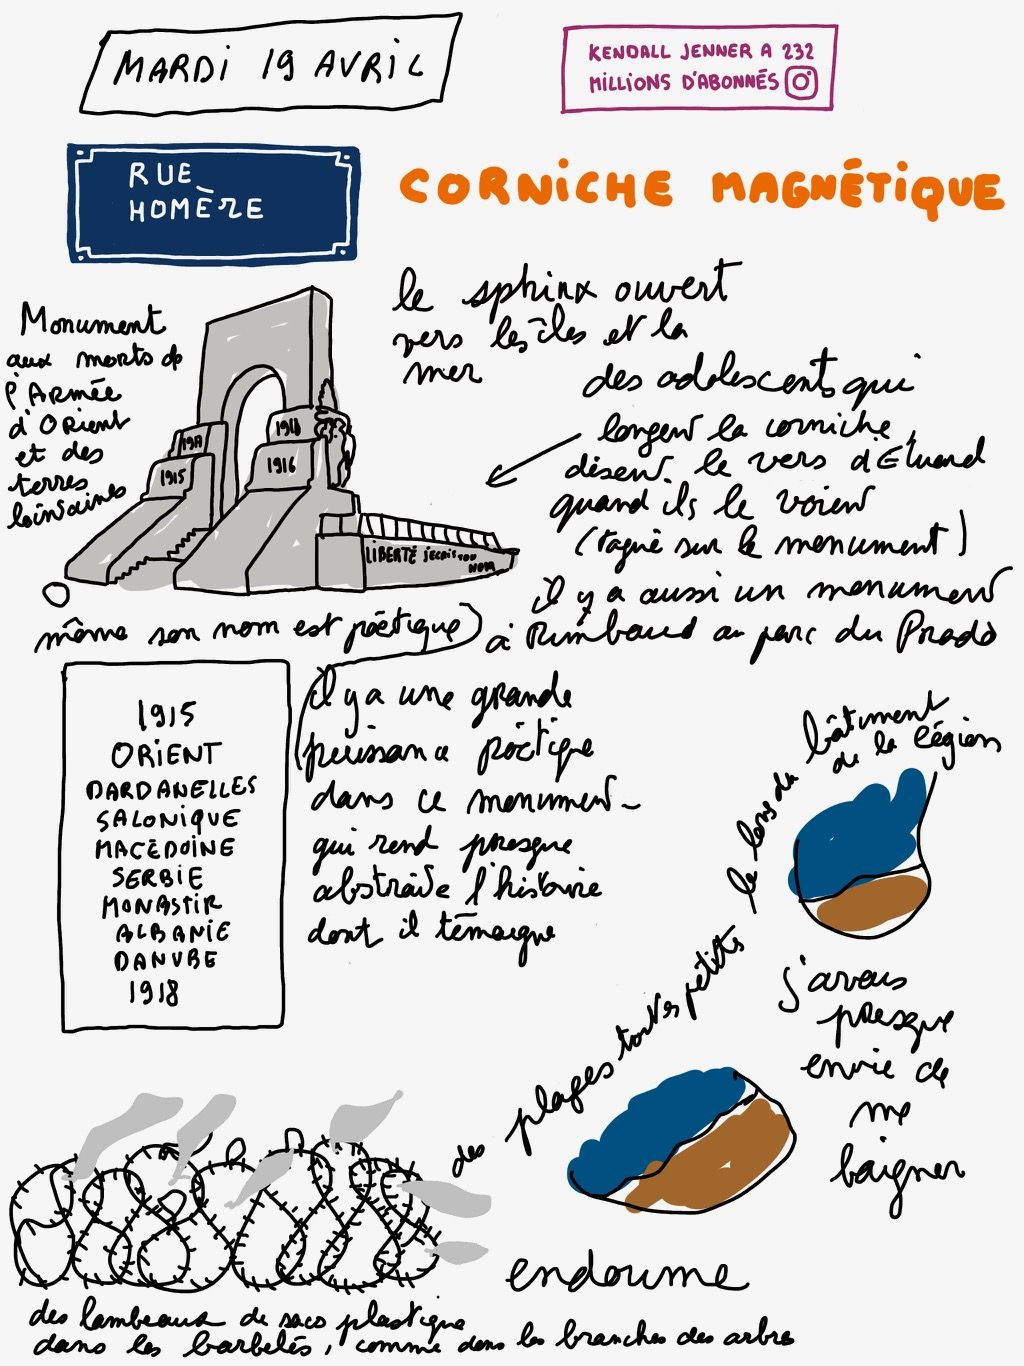 MARDI 19 AVRIL
KENDALL JENNER A 232
MILLIONS D'ABONNÉS
RUE
HOMÈRE
CORNICHE MAGNÉTIQUE
le sphinx ouvert
vers les îles et la
mer
Monument
aux morts de
l'Armée
d'Orient
et des
terres
lointaines
1915
1918
1916
LIBERTÉ j'écris ton
NOM
des adolescents qui
longent la corniche,
disent le vers d'Eluard
quand ils le voient
(tagué sur le monument)
il y a aussi un monument
à Rimbaud au parc du Prado
même son nom est poétique
1915
ORIENT
DARDANELLES
SALONIQUE
MACÉDOINE
SERBIE
MONASTIR
ALBANIE
DANUBE
1918
il y a une grande
puissance poétique
dans ce monument
qui rend presque
abstraite l'histoire
dont il témoigne
des plages toutes petites le long du
bâtiment
de la légion
j'avais
presque
envie de
me
baigner
endoume
des lambeaux de sacs plastique
dans les barbelés, comme dans les branches des arbres